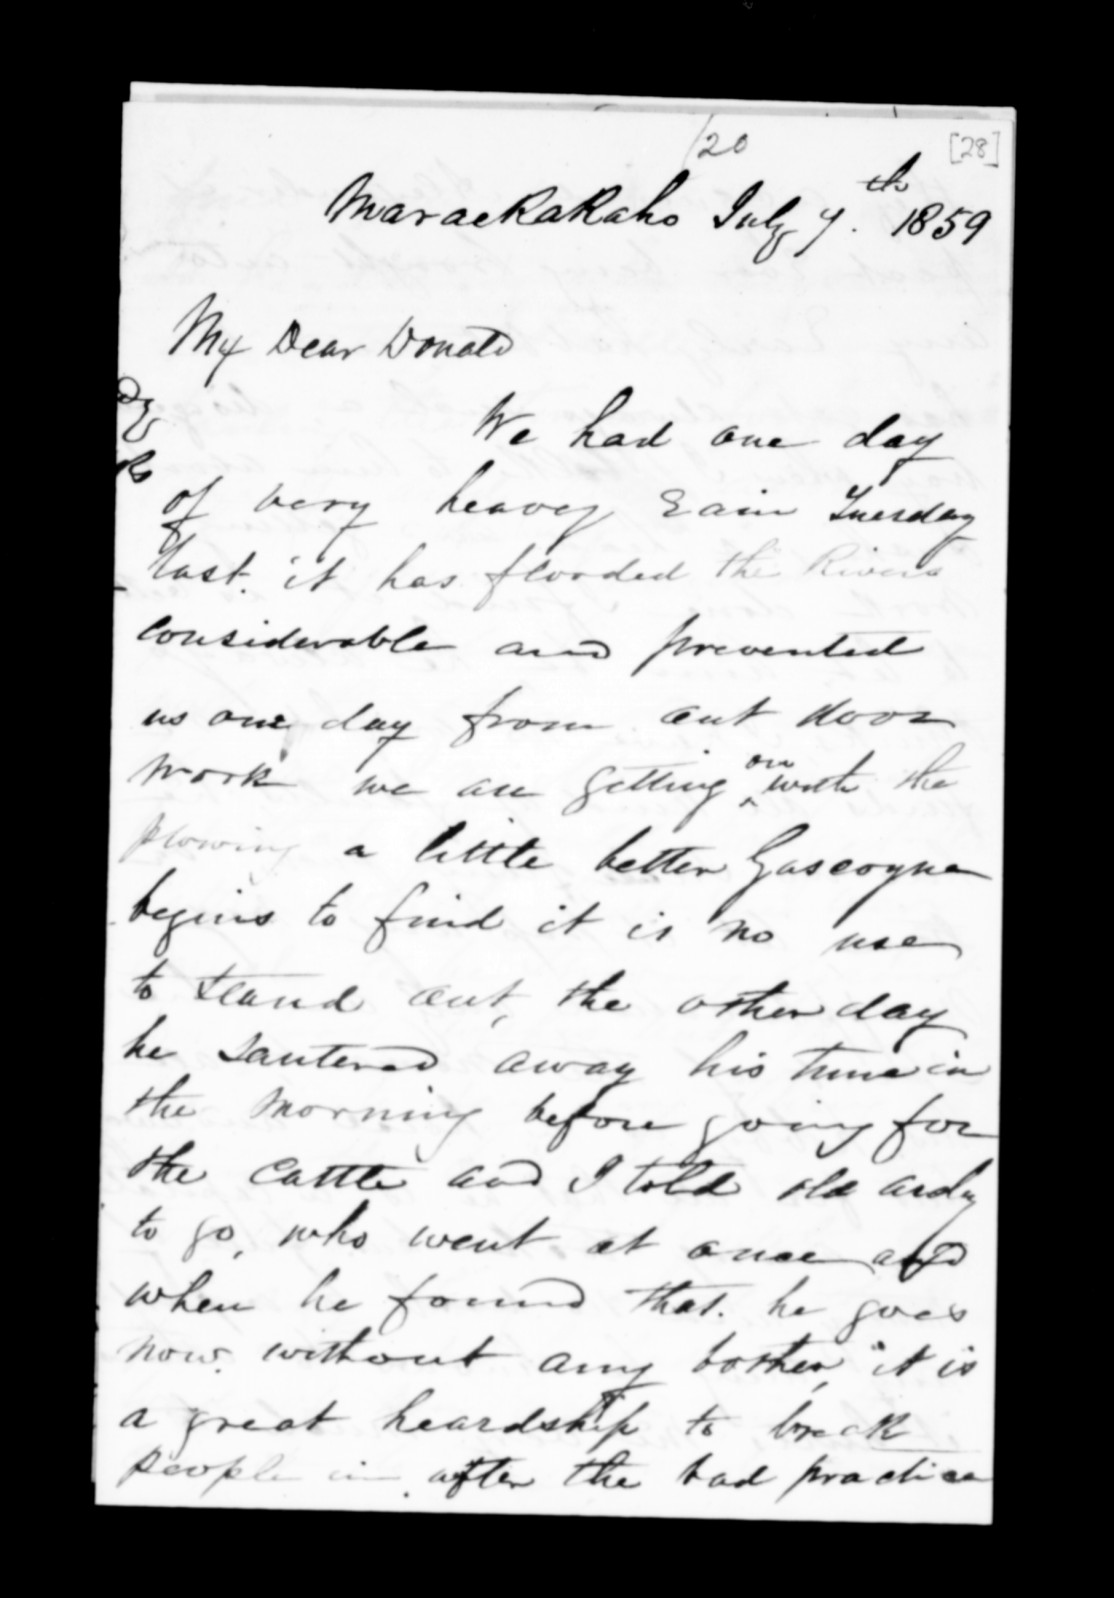 20
[28]
Maraekakaho July 7th. 1859
My Dear Donald
We had one day
of very heavey Rain Tuesday
last. it has flooded the Rivers
considerable and prevented
us one day from out door
work we are getting on with the
plowing a little better Gascoyne
begins to find it is no use
to stand out, the other day
he santered away his time in
the morning before going for
the cattle and I told old andy
to go, who went at once and
when he found that. he goes
now. without any bother, it is
a great heardship to break
people in after the bad practice